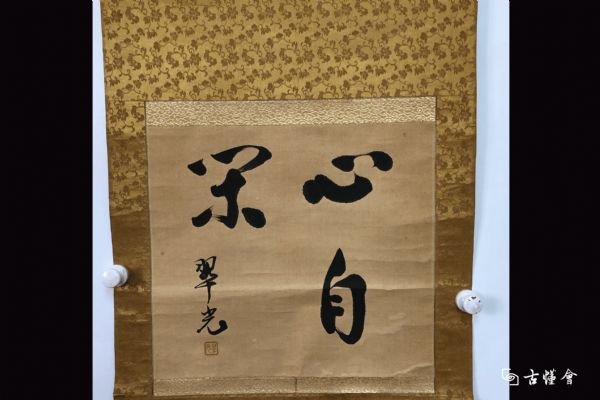 心自
閑
翠光
古懂會